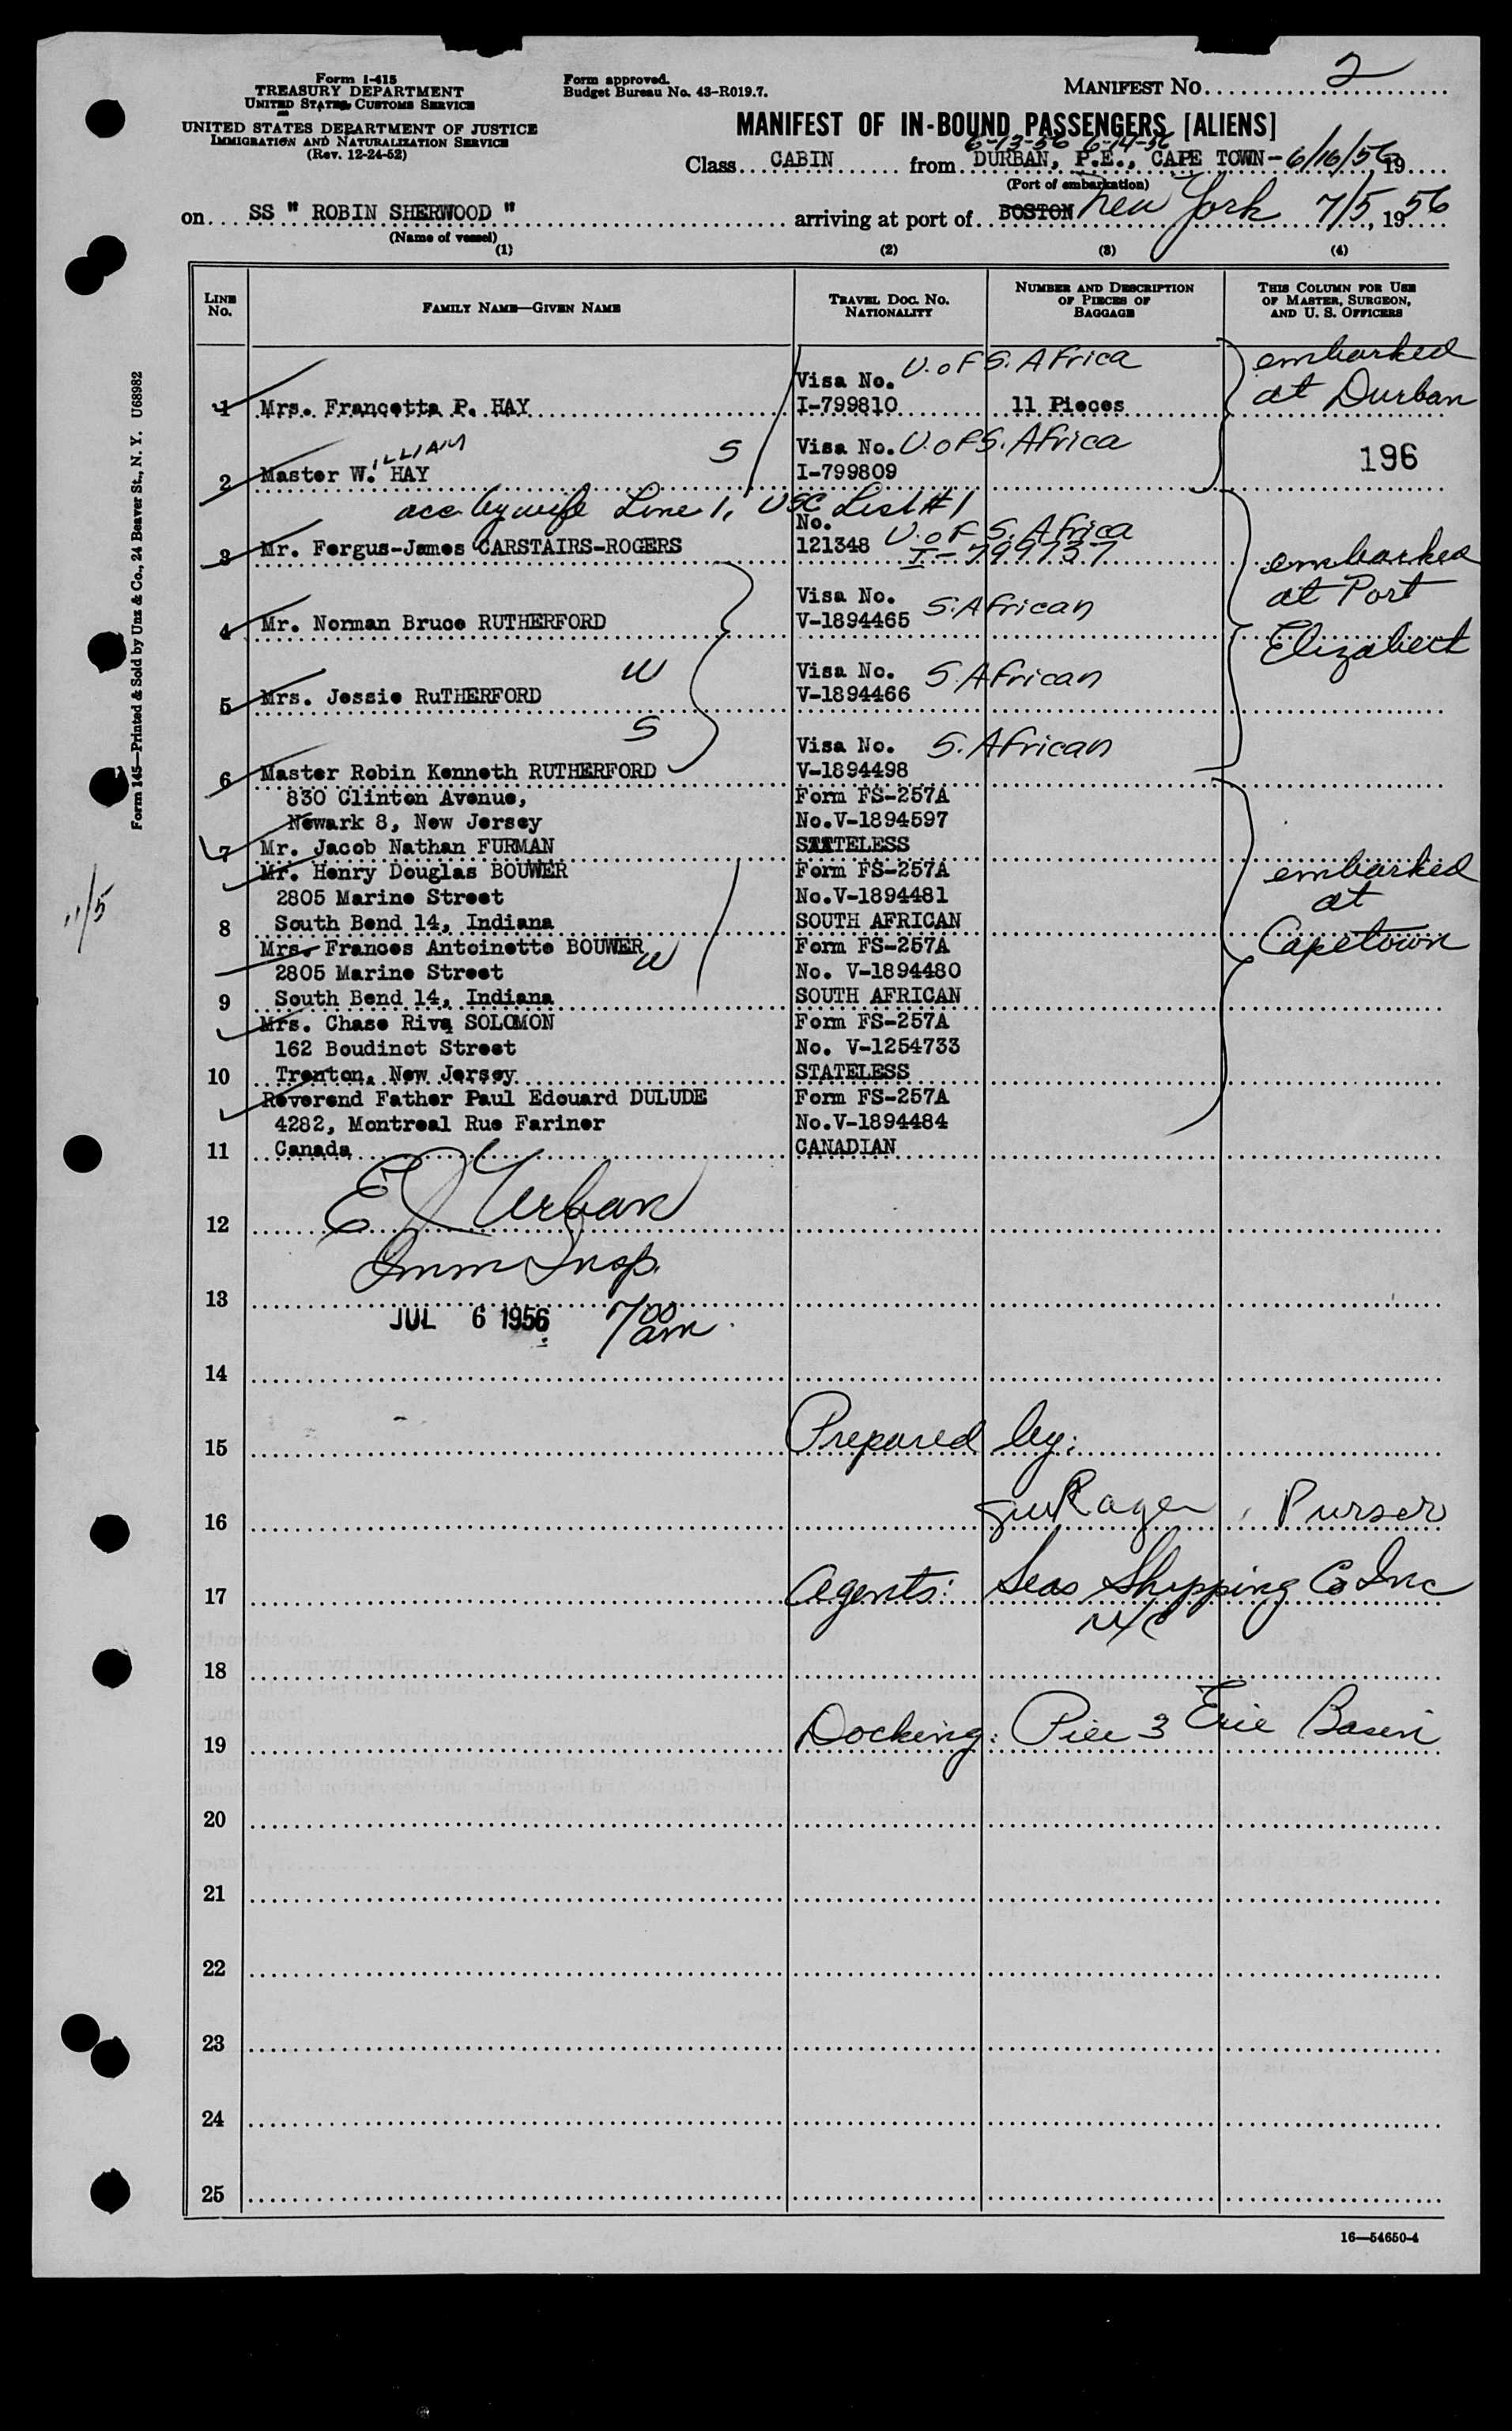 Form I-415
TREASURY DEPARTMENT
UNITED STATES CUSTOMS SERVICE
UNITED STATES DEPARTMENT OF JUSTICE
IMMIGRATION AND NATURALIZATION SERVICE
(Rev. 12-24-52)
Form approved.
Budget Bureau No. 43-R019.7.
MANIFEST NO. 2
MANIFEST OF IN-BOUND PASSENGERS [ALIENS]
6-13-56 6-14-56
Class CABIN from DURBAN, P.E., CAPE TOWN- 6/16/56 19
(Port of embarkation)
on SS " ROBIN SHERWOOD " arriving at port of BOSTON New York 7/5, 1956
(Name of vessel)
(1) (2) (3) (4)
LINE No. FAMILY NAME—GIVEN NAME TRAVEL DOC. NO. NATIONALITY NUMBER AND DESCRIPTION OF PIECES OF BAGGAGE THIS COLUMN FOR USE OF MASTER, SURGEON, AND U. S. OFFICERS
Visa No. U. of S. Africa embarked
1 Mrs. Francetta P. HAY I-799810 11 Pieces at Durban
ILLIAM S Visa No. U. of S. Africa
2 Master W. HAY I-799809 196
acc by wife Line 1, USC List #1
No. U. of S. Africa
3 Mr. Fergus-James CARSTAIRS-ROGERS 121348 I-799737 embarked
Visa No. S. African at Port
4 Mr. Norman Bruce RUTHERFORD V-1894465 Elizabeth
W Visa No. S. African
5 Mrs. Jessie RuTHERFORD V-1894466
S Visa No. S. African
6 Master Robin Kenneth RUTHERFORD V-1894498
830 Clinton Avenue, Form FS-257A
Newark 8, New Jersey No.V-1894597
7 Mr. Jacob Nathan FURMAN STATELESS
Mr. Henry Douglas BOUWER Form FS-257A embarked
2805 Marine Street No.V-1894481 at
8 South Bend 14, Indiana SOUTH AFRICAN Capetown
Mrs. Frances Antoinette BOUWER W Form FS-257A
2805 Marine Street No. V-1894480
9 South Bend 14, Indiana SOUTH AFRICAN
Mrs. Chase Riva SOLOMON Form FS-257A
162 Boudinot Street No. V-1254733
10 Trenton, New Jersey STATELESS
Reverend Father Paul Edouard DULUDE Form FS-257A
4282, Montreal Rue Fariner No.V-1894484
11 Canada CANADIAN
E Urban
12
Imm Insp.
13
JUL 6 1956 7 00 am.
14
15 Prepared by:
16 Rager, Purser
17 Agents: Seas Shipping Co Inc
NYC
18
19 Docking: Pier 3 Erie Basin
20
21
22
23
24
25
16—54650-4
Form 145—Printed & Sold by Unz & Co., 24 Beaver St., N. Y. U68982
11/5